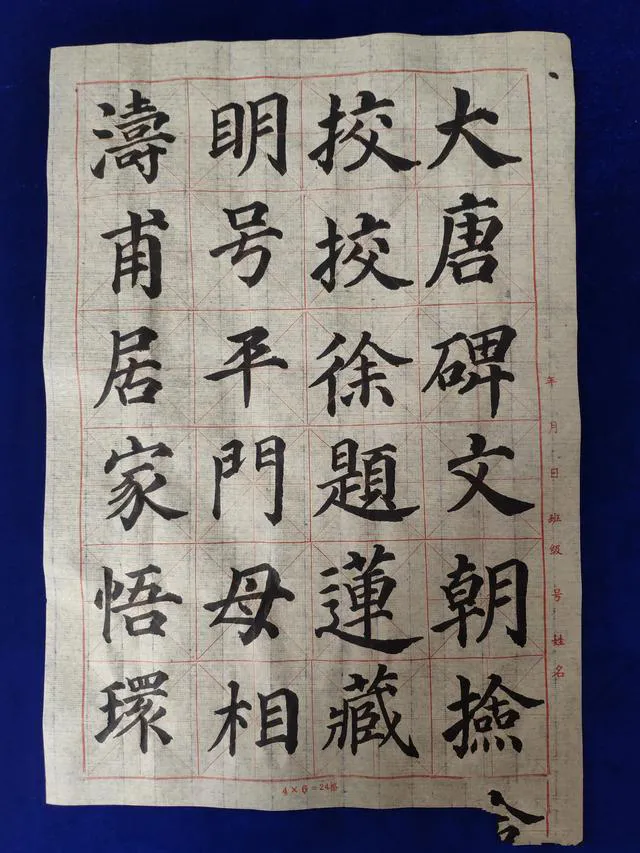 大唐碑文朝撿
挍挍徐題蓮藏
眀号平門母相
濤甫居家悟環
年 月 日 班 级 号 姓 名
4×6=24格